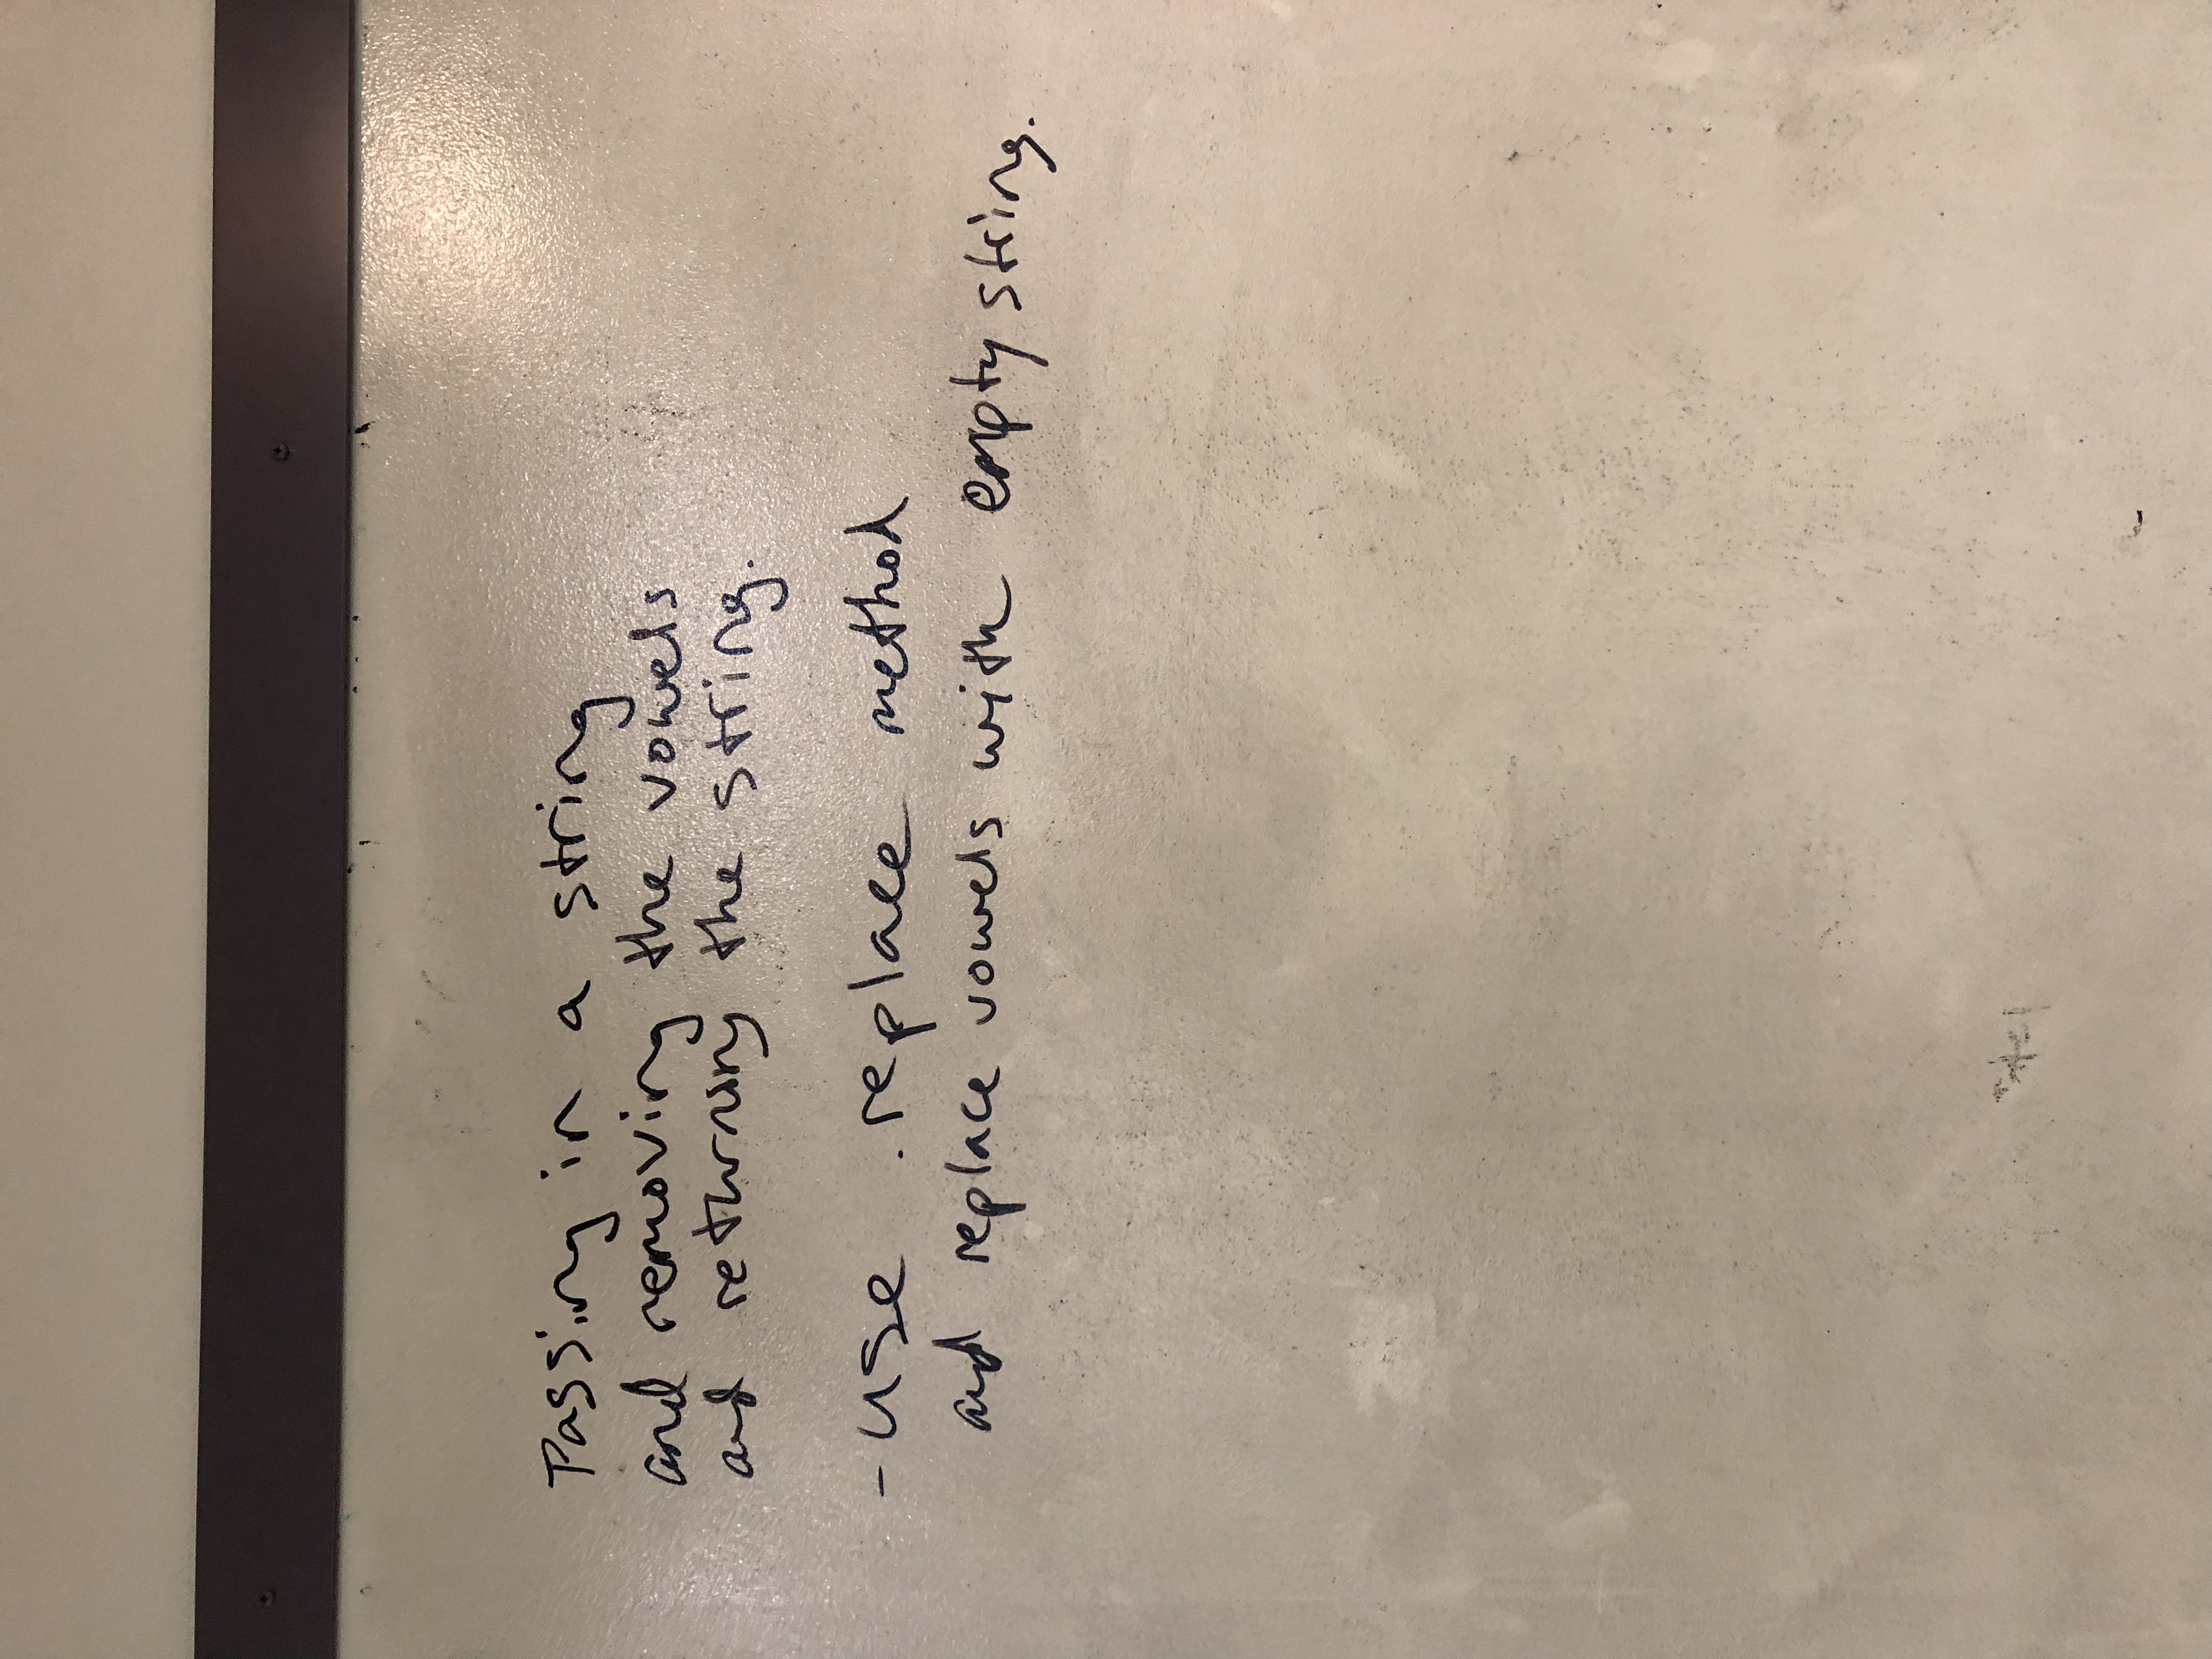 Passing in a string
and removing the vowels
and returning the string.
- use .replace method
and replace vowels with empty string.